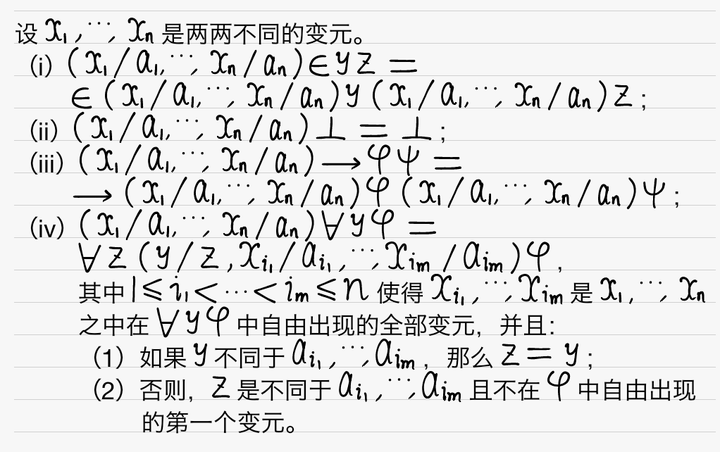 设 x₁,⋯,xₙ 是两两不同的变元。
(i) (x₁/a₁,⋯,xₙ/aₙ)∈yz =
∈(x₁/a₁,⋯,xₙ/aₙ)y(x₁/a₁,⋯,xₙ/aₙ)z;
(ii) (x₁/a₁,⋯,xₙ/aₙ)⊥ = ⊥;
(iii) (x₁/a₁,⋯,xₙ/aₙ)→φψ =
→(x₁/a₁,⋯,xₙ/aₙ)φ(x₁/a₁,⋯,xₙ/aₙ)ψ;
(iv) (x₁/a₁,⋯,xₙ/aₙ)∀yφ =
∀z(y/z,x_{i₁}/a_{i₁},⋯,x_{iₘ}/a_{iₘ})φ,
其中 1≤i₁<⋯<iₘ≤n 使得 x_{i₁},⋯,x_{iₘ} 是 x₁,⋯,xₙ
之中在 ∀yφ 中自由出现的全部变元，并且：
(1) 如果 y 不同于 a_{i₁},⋯,a_{iₘ}，那么 z=y;
(2) 否则，z 是不同于 a_{i₁},⋯,a_{iₘ} 且不在 φ 中自由出现
的第一个变元。